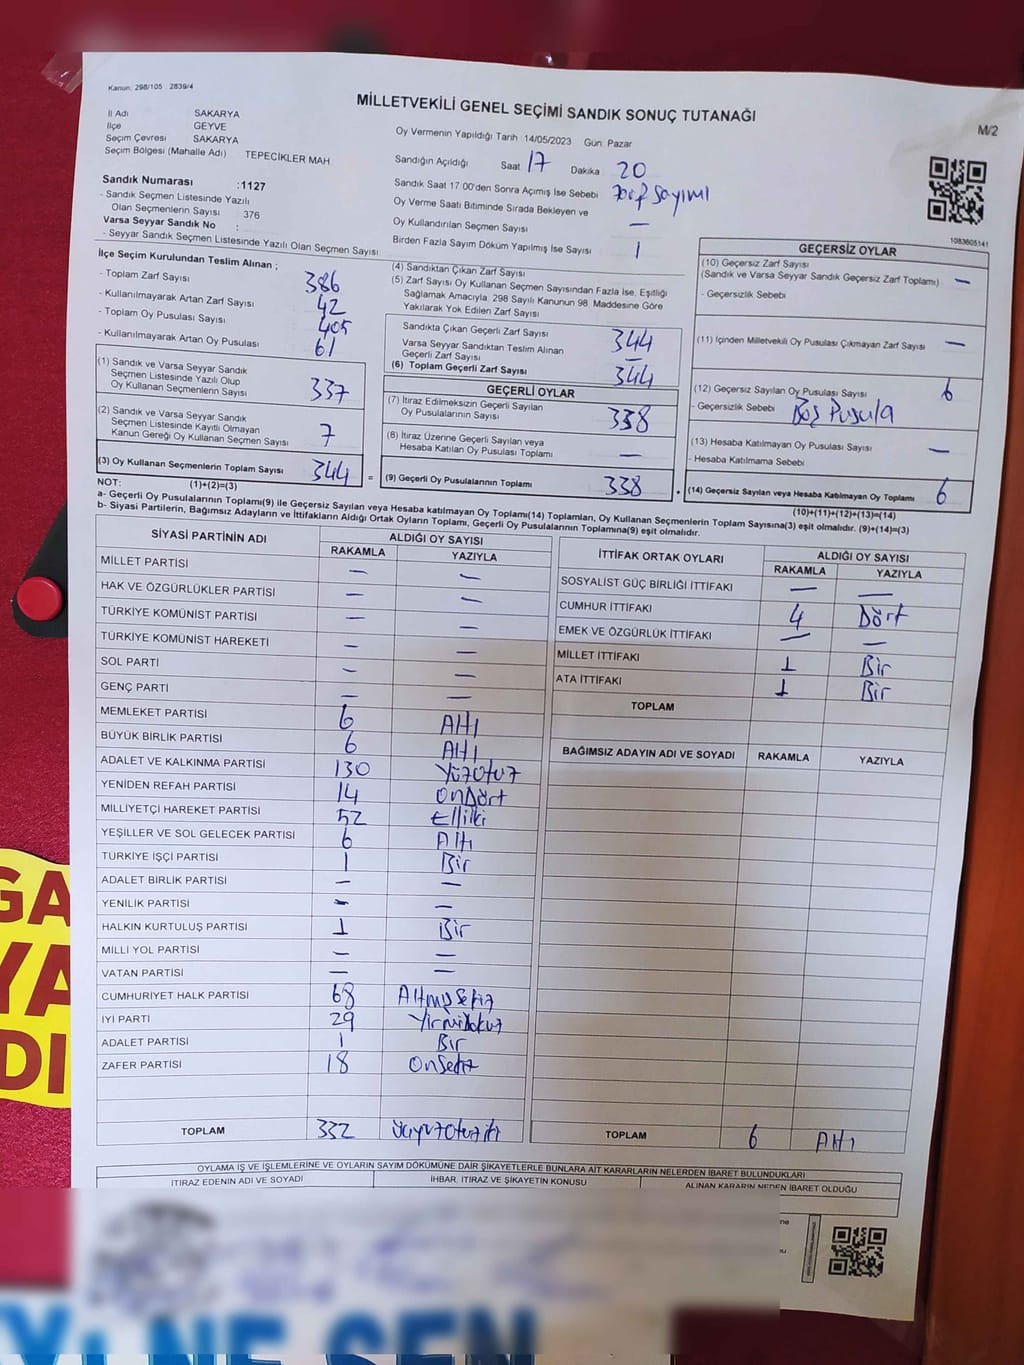 Kanun: 298/105 2839/4
MİLLETVEKİLİ GENEL SEÇİMİ SANDIK SONUÇ TUTANAĞI
M/2
İl Adı SAKARYA
İlçe GEYVE
Seçim Çevresi SAKARYA
Seçim Bölgesi (Mahalle Adı) TEPECİKLER MAH
Sandık Numarası :1127
- Sandık Seçmen Listesinde Yazılı
Olan Seçmenlerin Sayısı : 376
Varsa Seyyar Sandık No :
- Seyyar Sandık Seçmen Listesinde Yazılı Olan Seçmen Sayısı:
Oy Vermenin Yapıldığı Tarih : 14/05/2023 Gün: Pazar
Sandığın Açıldığı Saat 17 Dakika : 20
Sandık Saat 17 00'den Sonra Açımış İse Sebebi : Zarf Sayımı
Oy Verme Saati Bitiminde Sırada Bekleyen ve
Oy Kullandırılan Seçmen Sayısı : —
Birden Fazla Sayım Döküm Yapılmış İse Sayısı : 1
1083605141
İlçe Seçim Kurulundan Teslim Alınan ;
- Toplam Zarf Sayısı : 386
- Kullanılmayarak Artan Zarf Sayısı : 42
- Toplam Oy Pusulası Sayısı : 405
- Kullanılmayarak Artan Oy Pusulası : 61
(1) Sandık ve Varsa Seyyar Sandık
Seçmen Listesinde Yazılı Olup
Oy Kullanan Seçmenlerin Sayısı : 337
(2) Sandık ve Varsa Seyyar Sandık
Seçmen Listesinde Kayıtlı Olmayan
Kanun Gereği Oy Kullanan Seçmen Sayısı : 7
(3) Oy Kullanan Seçmenlerin Toplam Sayısı : 344 =
(1)+(2)=(3)
(4) Sandıktan Çıkan Zarf Sayısı
(5) Zarf Sayısı Oy Kullanan Seçmen Sayısından Fazla İse, Eşitliği
Sağlamak Amacıyla, 298 Sayılı Kanunun 98. Maddesine Göre
Yakılarak Yok Edilen Zarf Sayısı
Sandıkta Çıkan Geçerli Zarf Sayısı : 344
Varsa Seyyar Sandıktan Teslim Alınan
Geçerli Zarf Sayısı : —
(6) Toplam Geçerli Zarf Sayısı : 344
GEÇERLİ OYLAR
(7) İtiraz Edilmeksizin Geçerli Sayılan
Oy Pusulalarının Sayısı : 338
(8) İtiraz Üzerine Geçerli Sayılan veya
Hesaba Katılan Oy Pusulası Toplamı : —
(9) Geçerli Oy Pusulalarının Toplamı : 338
GEÇERSİZ OYLAR
(10) Geçersiz Zarf Sayısı
(Sandık ve Varsa Seyyar Sandık Geçersiz Zarf Toplamı) : —
- Geçersizlik Sebebi
(11) İçinden Milletvekili Oy Pusulası Çıkmayan Zarf Sayısı : —
(12) Geçersiz Sayılan Oy Pusulası Sayısı : 6
- Geçersizlik Sebebi : Boş Pusula
(13) Hesaba Katılmayan Oy Pusulası Sayısı : —
- Hesaba Katılmama Sebebi
(14) Geçersiz Sayılan veya Hesaba Katılmayan Oy Toplamı : 6
(10)+(11)+(12)+(13)=(14)
NOT:
a- Geçerli Oy Pusulalarının Toplamı(9) ile Geçersiz Sayılan veya Hesaba katılmayan Oy Toplamı(14) Toplamları, Oy Kullanan Seçmenlerin Toplam Sayısına(3) eşit olmalıdır. (9)+(14)=(3)
b- Siyasi Partilerin, Bağımsız Adayların ve İttifakların Aldığı Ortak Oyların Toplamı, Geçerli Oy Pusulalarının Toplamına(9) eşit olmalıdır.
SİYASİ PARTİNİN ADI ALDIĞI OY SAYISI
RAKAMLA YAZIYLA
MİLLET PARTİSİ — —
HAK VE ÖZGÜRLÜKLER PARTİSİ — —
TÜRKİYE KOMÜNİST PARTİSİ — —
TÜRKİYE KOMÜNİST HAREKETİ — —
SOL PARTİ — —
GENÇ PARTİ — —
MEMLEKET PARTİSİ 6 Altı
BÜYÜK BİRLİK PARTİSİ 6 Altı
ADALET VE KALKINMA PARTİSİ 130 Yüzotuz
YENİDEN REFAH PARTİSİ 14 Ondört
MİLLİYETÇİ HAREKET PARTİSİ 52 Elliiki
YEŞİLLER VE SOL GELECEK PARTİSİ 6 Altı
TÜRKİYE İŞÇİ PARTİSİ 1 Bir
ADALET BİRLİK PARTİSİ — —
YENİLİK PARTİSİ — —
HALKIN KURTULUŞ PARTİSİ 1 Bir
MİLLİ YOL PARTİSİ — —
VATAN PARTİSİ — —
CUMHURİYET HALK PARTİSİ 68 Altmışsekiz
İYİ PARTİ 29 Yirmidokuz
ADALET PARTİSİ 1 Bir
ZAFER PARTİSİ 18 Onsekiz
TOPLAM 332 Üçyüzotuziki
İTTİFAK ORTAK OYLARI ALDIĞI OY SAYISI
RAKAMLA YAZIYLA
SOSYALİST GÜÇ BİRLİĞİ İTTİFAKI — —
CUMHUR İTTİFAKI 4 Dört
EMEK VE ÖZGÜRLÜK İTTİFAKI — —
MİLLET İTTİFAKI 1 Bir
ATA İTTİFAKI 1 Bir
TOPLAM
BAĞIMSIZ ADAYIN ADI VE SOYADI RAKAMLA YAZIYLA
TOPLAM 6 Altı
OYLAMA İŞ VE İŞLEMLERİNE VE OYLARIN SAYIM DÖKÜMÜNE DAİR ŞİKAYETLERLE BUNLARA AİT KARARLARIN NELERDEN İBARET BULUNDUKLARI
İTİRAZ EDENİN ADI VE SOYADI İHBAR, İTİRAZ VE ŞİKAYETİN KONUSU ALINAN KARARIN NEDEN İBARET OLDUĞU
GA
YA
DI